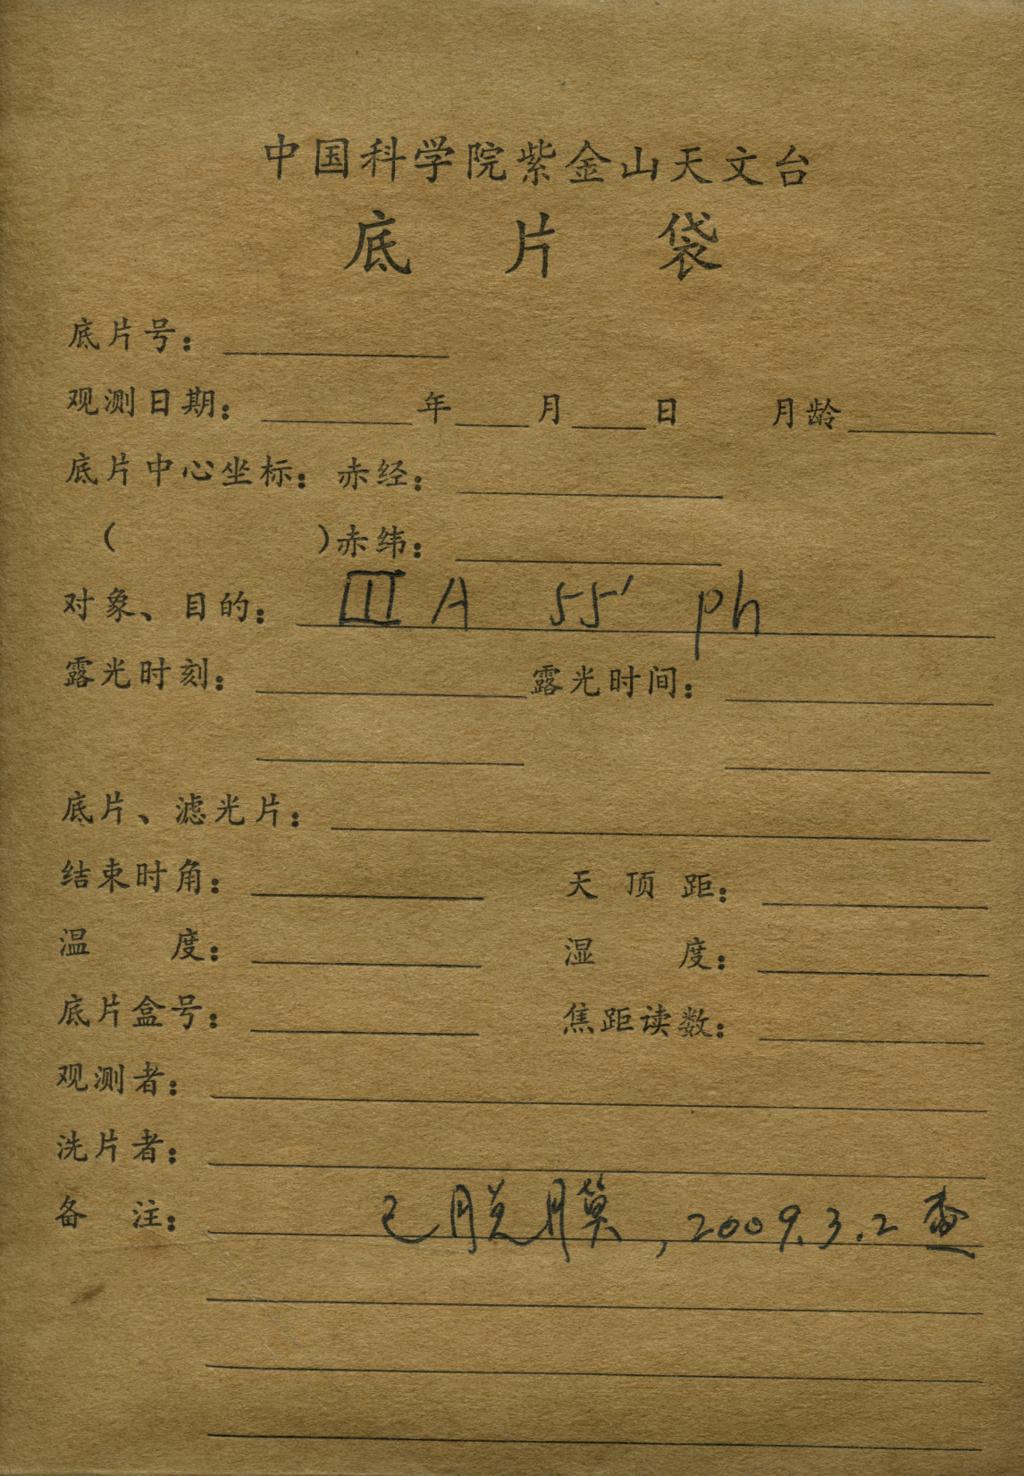 中国科学院紫金山天文台
底片袋
底片号：
观测日期： 年 月 日 月龄
底片中心坐标：赤经：
（ ）赤纬：
对象、目的： III A 55′ ph
露光时刻： 露光时间：
底片、滤光片：
结束时角： 天顶距：
温度： 湿度：
底片盒号： 焦距读数：
观测者：
洗片者：
备注： 已脱膜，2009.3.2查